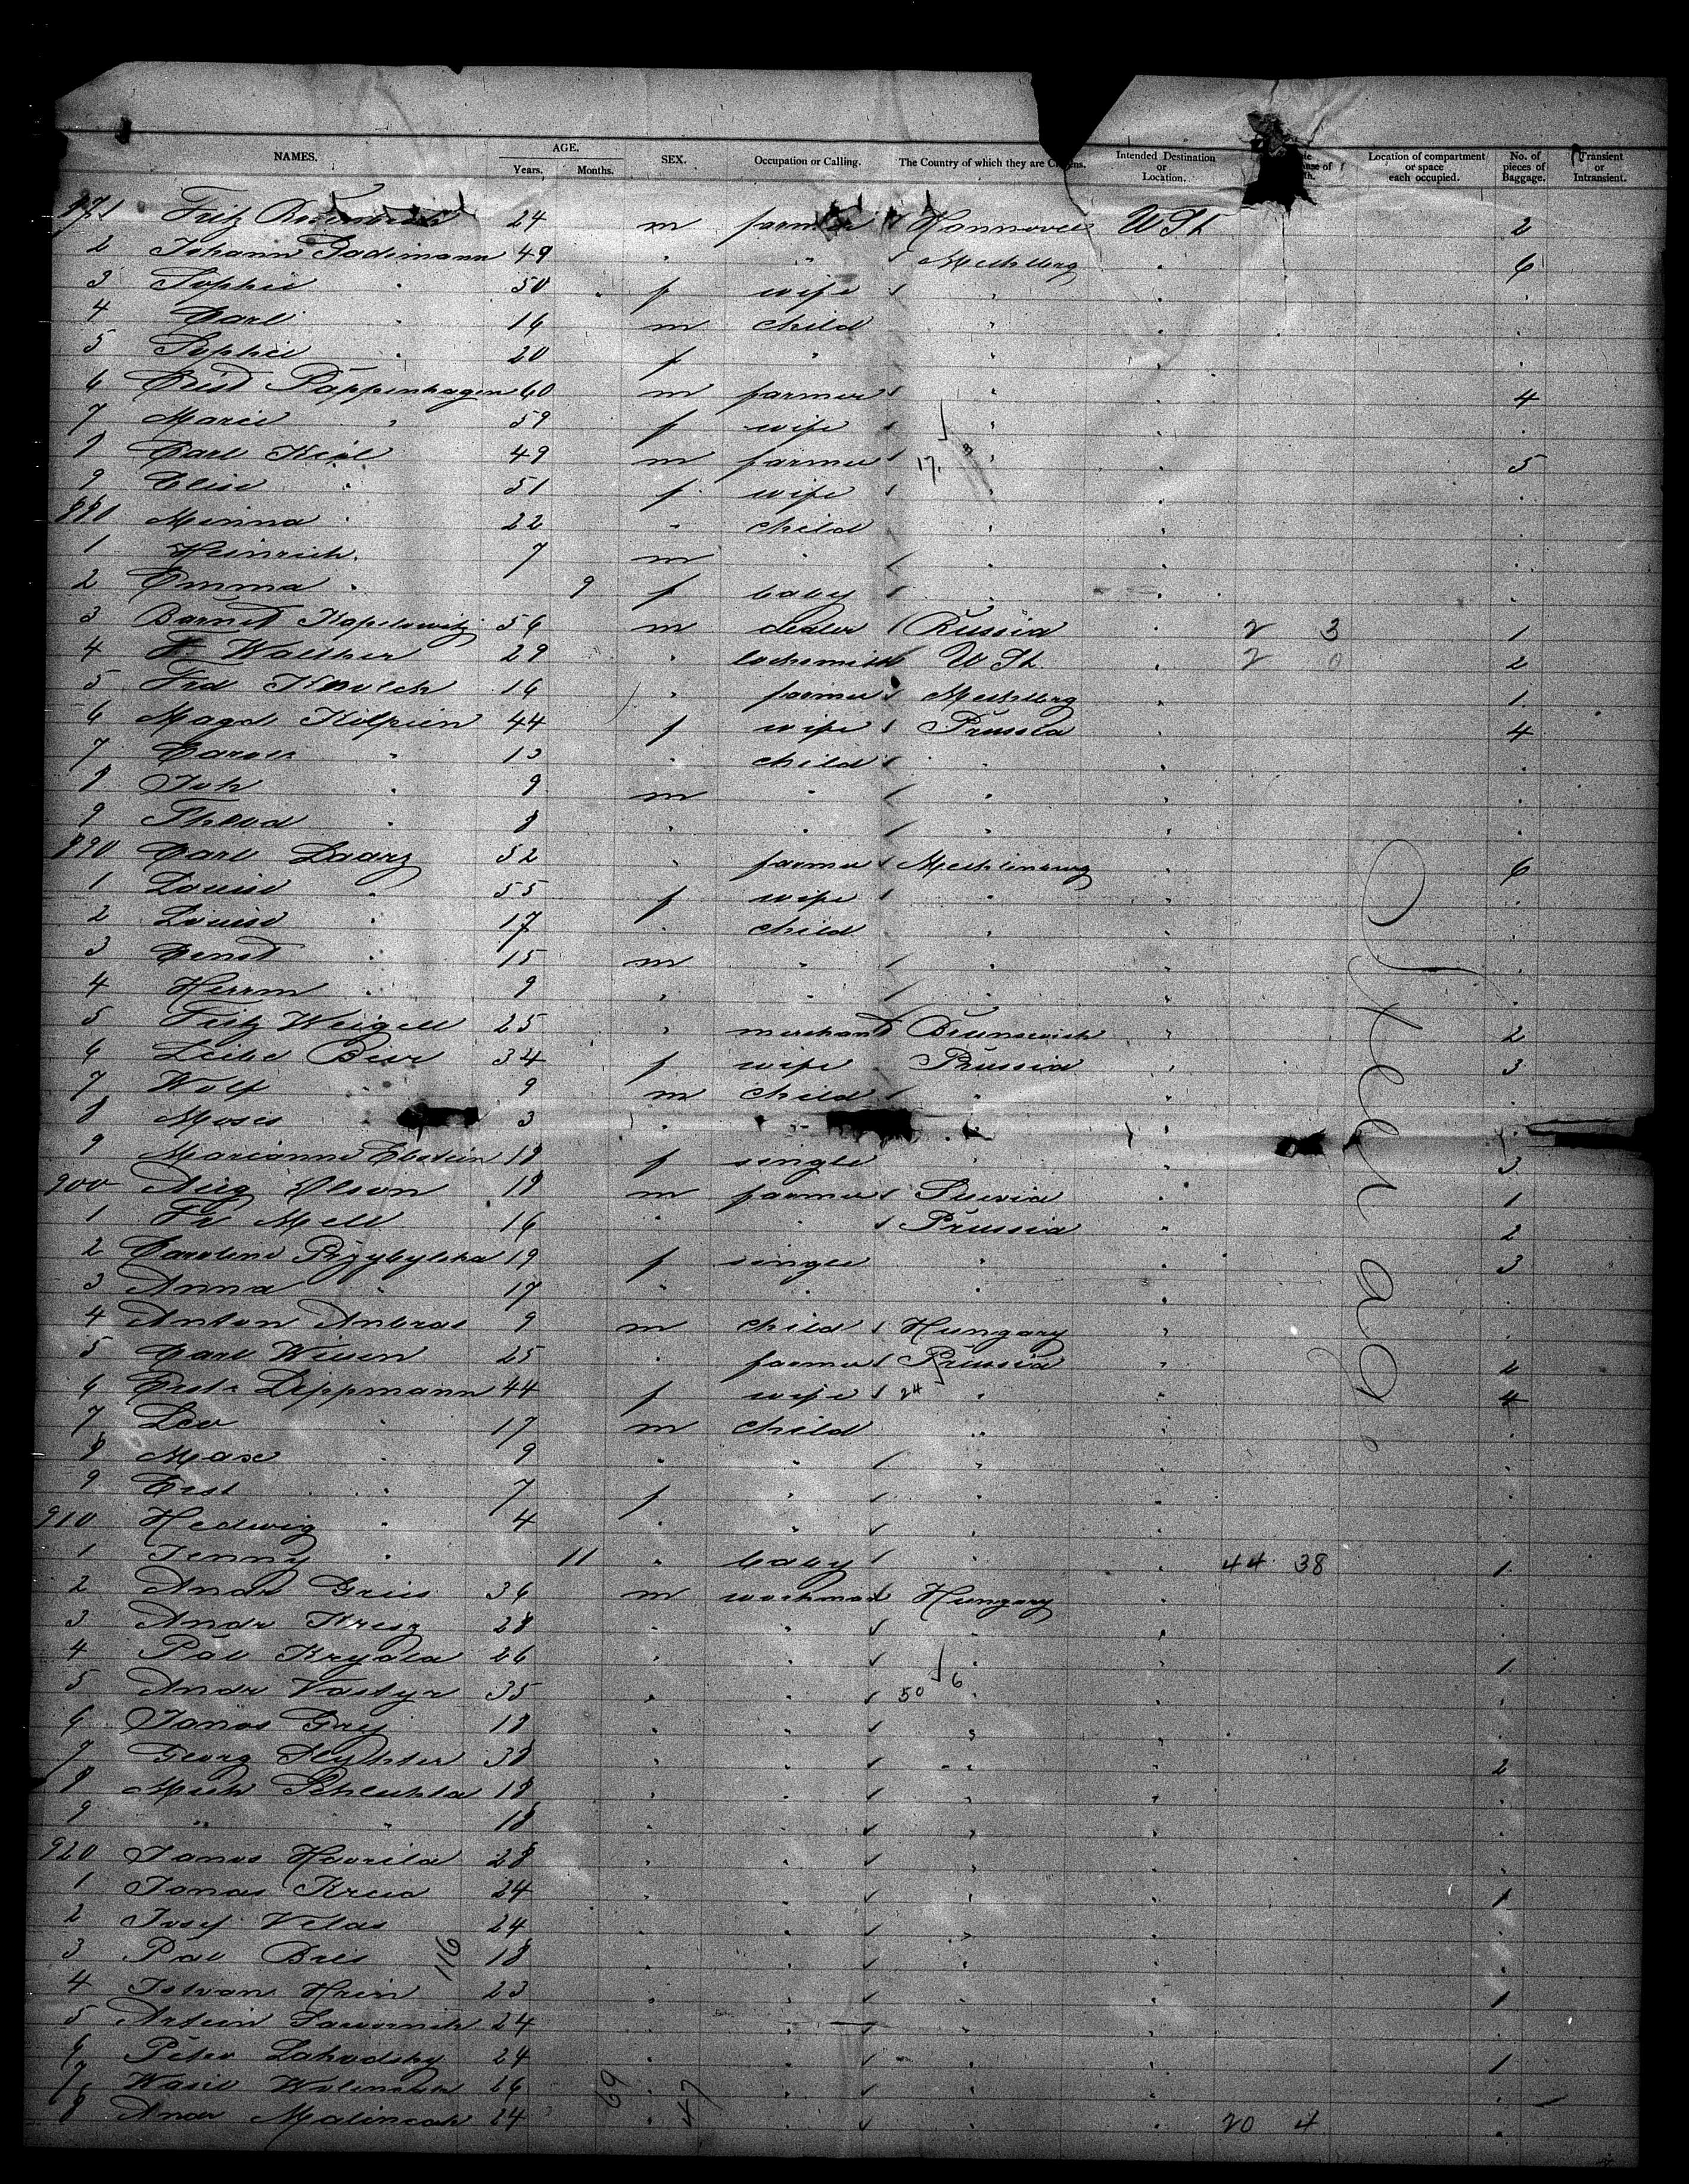 NAMES. AGE. Years. Months. SEX. Occupation or Calling. The Country of which they are Intended Destination or Location. Location of compartment or space each occupied. No. of pieces of Baggage. Transient or Intransient.
871 Fritz 24 m farmer Hannover W St 2
2 Johann Gademann 49 " " Mecklbrg " 6
3 Sophie " 50 f wife " " "
4 Carl " 16 m child " " "
5 Sophie " 20 f " " " "
6 Pappenhagen 60 m farmer " " 4
7 Marie " 59 f wife " " "
8 Carl Keil 49 m farmer " " 5
9 Elise " 51 f wife " " "
880 Minna " 22 " child " " "
1 Heinrich " 7 m " " " "
2 Emma " 9 f baby " " "
3 Barnet Kopelowitz 56 m dealer Russia " 2 3 1
4 Walther 29 " locksmith W St " 2 0 2
5 Frd 16 " farmer Mecklbrg " 1
6 Magd Kilpien 44 f wife Prussia " 4
7 " 13 " child " " "
8 Joh " 9 m " " " "
9 Theod " 8 " " " " "
890 Carl Daarz 52 " farmer Mecklenburg " 6
1 Louise " 55 f wife " " "
2 Louise " 17 " child " " "
3 Ernst " 15 m " " " "
4 Herrm " 9 " " " " "
5 Fritz Weigell 25 " merchant Brunswick " 2
6 Leibe Bier 34 f wife Prussia " 3
7 Wolf 9 m child " " "
8 Moses 3 " " " " "
9 Marianne Ebstein 18 f single " " 3
900 Aug Olson 18 m farmer " 1
1 Fr Mell 16 " " Prussia " 2
2 Caroline Przybylska 19 f single " " 3
3 Anna " 17 " " " " "
4 Anton Anbras 9 m child Hungary " "
5 Carl 25 " farmer Prussia " 2
6 Lippmann 44 f wife " " 4
7 Leo " 17 m child " " "
8 Max " 9 " " " " "
9 " 7 f " " " "
910 Hedwig " 4 " " " " "
1 Jenny " 11 " baby " " 44 38 1
2 Andr Gries 36 m workman Hungary "
3 Andr Kresz 28 " " " "
4 Pal Kryala 26 " " " " 1
5 Andr Vastyr 35 " " " " "
6 Janos Grej 18 " " " " "
7 Georg 38 " " " " 2
8 Mich 18 " " " " "
9 " " 18 " " " " "
920 Janos Havrila 28 " " " " "
1 Jonas 24 " " " " 1
2 Josef Velas 24 " " " " "
3 Pal Bres 18 " " " " "
4 Istvan Hrin 23 " " " " 1
5 24 " " " " "
6 Peter Lahodsky 24 " " " " 1
7 Wasil 26 " " " " "
8 Andr 24 " " " " 20 4 "
Steerage
17
24
50 6
116
69
47